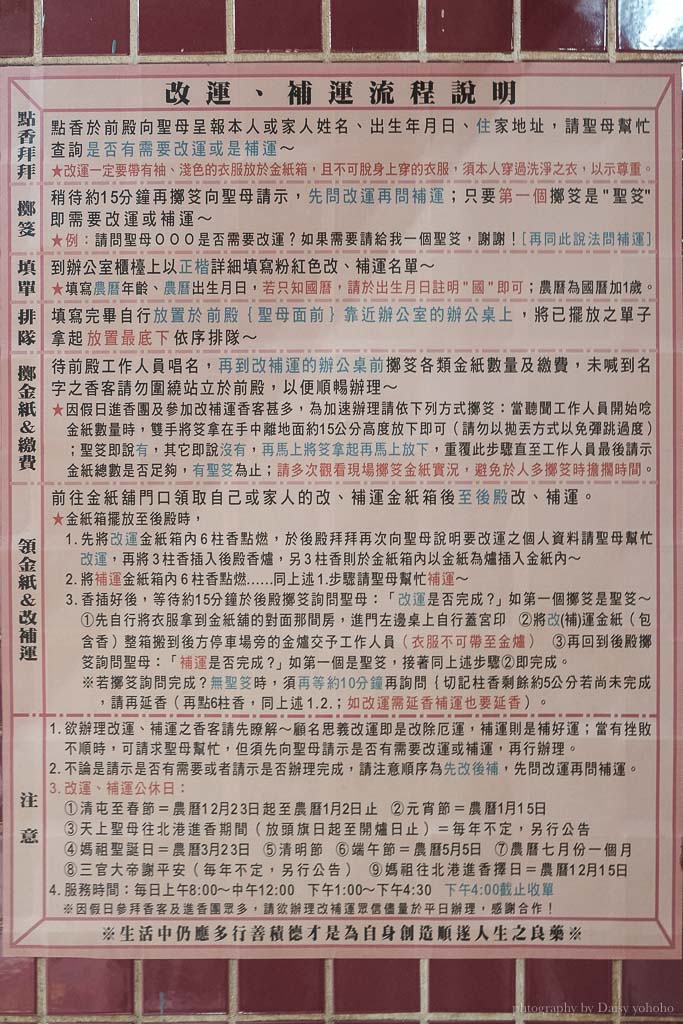 改運、補運流程說明
點香拜拜
點香於前殿向聖母呈報本人或家人姓名、出生年月日、住家地址，請聖母幫忙
查詢是否有需要改運或是補運～
★改運一定要帶有袖、淺色的衣服放於金紙箱，且不可脫身上穿的衣服，須本人穿過洗淨之衣，以示尊重。
擲筊
稍待約15分鐘再擲筊向聖母請示，先問改運再問補運；只要第一個擲筊是"聖筊"
即需要改運或補運～
★例：請問聖母OOO是否需要改運？如果需要請給我一個聖筊，謝謝！[再同此說法問補運]
填單
到辦公室櫃檯上以正楷詳細填寫粉紅色改、補運名單～
★填寫農曆年齡、農曆出生月日，若只知國曆，請於出生月日註明"國"即可；農曆為國曆加1歲。
排隊
填寫完畢自行放置於前殿｛聖母面前｝靠近辦公室的辦公桌上，將已擺放之單子
拿起放置最底下依序排隊～
擲金紙&繳費
待前殿工作人員唱名，再到改補運的辦公桌前擲筊各類金紙數量及繳費，未喊到名
字之香客請勿圍繞站立於前殿，以便順暢辦理～
★因假日進香團及參加改補運香客甚多，為加速辦理請依下列方式擲筊：當聽聞工作人員開始唸
金紙數量時，雙手將筊拿在手中離地面約15公分高度放下即可（請勿以拋丟方式以免彈跳過度）
；聖筊即說有，其它即說沒有，再馬上將筊拿起再馬上放下，重覆此步驟直至工作人員最後請示
金紙總數是否足夠，有聖筊為止；請多次觀看現場擲筊金紙實況，避免於人多擲筊時擔擱時間。
領金紙&改補運
前往金紙舖門口領取自己或家人的改、補運金紙箱後至後殿改、補運。
★金紙箱擺放至後殿時，
1.先將改運金紙箱內6柱香點燃，於後殿拜拜再次向聖母說明要改運之個人資料請聖母幫忙
改運，再將3柱香插入後殿香爐，另3柱香則於金紙箱內以金紙為爐插入金紙內～
2.將補運金紙箱內6柱香點燃......同上述1.步驟請聖母幫忙補運～
3.香插好後，等待約15分鐘於後殿擲筊詢問聖母：「改運是否完成？」如第一個擲筊是聖筊～
①先自行將衣服拿到金紙舖的對面那間房，進門左邊桌上自行蓋宮印 ②將改(補)運金紙（包
含香）整箱搬到後方停車場旁的金爐交予工作人員（衣服不可帶至金爐） ③再回到後殿擲
筊詢問聖母：「補運是否完成？」如第一個是聖筊，接著同上述步驟②即完成。
※若擲筊詢問完成？無聖筊時，須再等約10分鐘再詢問｛切記柱香剩餘約5公分若尚未完成
，請再延香（再點6柱香，同上述1.2.；如改運需延香補運也要延香）。
注意
1.欲辦理改運、補運之香客請先瞭解～顧名思義改運即是改除厄運，補運則是補好運；當有挫敗
不順時，可請求聖母幫忙，但須先向聖母請示是否有需要改運或補運，再行辦理。
2.不論是請示是否有需要或者請示是否辦理完成，請注意順序為先改後補，先問改運再問補運。
3.改運、補運公休日：
①清屯至春節＝農曆12月23日起至農曆1月2日止 ②元宵節＝農曆1月15日
③天上聖母往北港進香期間（放頭旗日起至開爐日止）＝每年不定，另行公告
④媽祖聖誕日＝農曆3月23日 ⑤清明節 ⑥端午節＝農曆5月5日 ⑦農曆七月份一個月
⑧三官大帝謝平安（每年不定，另行公告） ⑨媽祖往北港進香擇日＝農曆12月15日
4.服務時間：每日上午8:00～中午12:00 下午1:00～下午4:30 下午4:00截止收單
※因假日參拜香客及進香團眾多，請欲辦理改補運眾信儘量於平日辦理，感謝合作！
※生活中仍應多行善積德才是為自身創造順遂人生之良藥※
phtography by Daisy yohoho